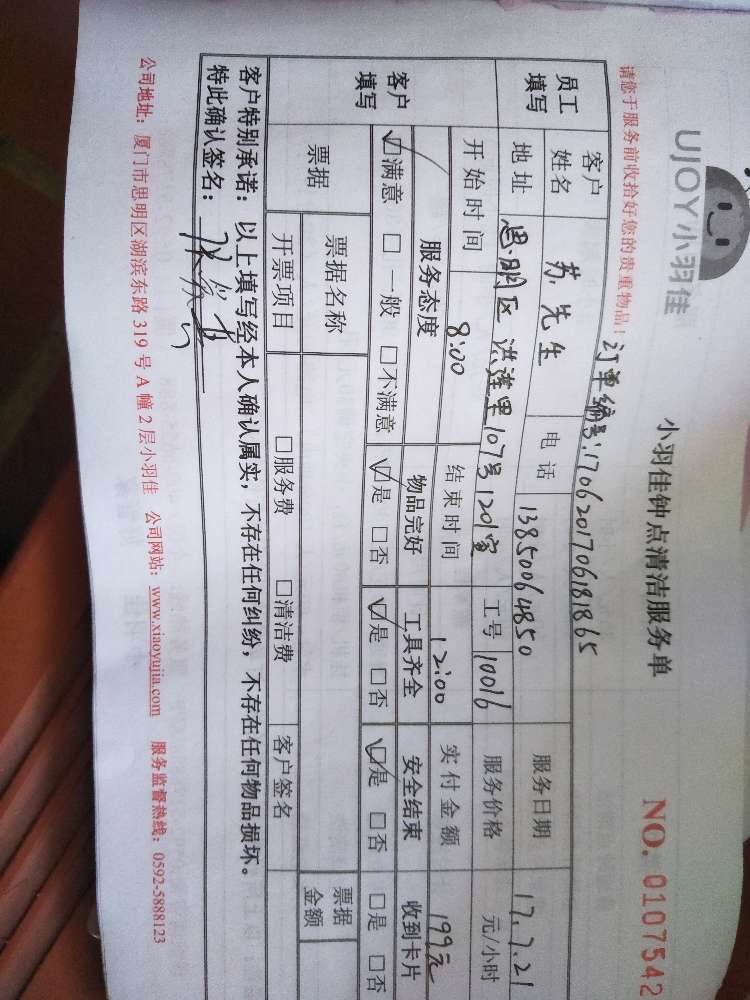 UJOY小羽佳
小羽佳钟点清洁服务单
NO. 0107542
请您于服务前收拾好您的贵重物品！
订单编号:1706201706181865
员工填写
客户姓名 苏先生 电话 13850064850 服务日期 17.7.21
地址 思明区 莲里107号1201室 工号 10016 服务价格 元/小时
开始时间 8:00 结束时间 12:00 实付金额 199元
客户填写
服务态度 物品完好 工具齐全 安全结束 收到卡片
☑满意 □一般 □不满意 ☑是 □否 ☑是 □否 ☑是 □否 □是 □否
票据 票据名称 票据金额
开票项目 □服务费 □清洁费 客户签名
客户特别承诺：以上填写经本人确认属实，不存在任何纠纷，不存在任何物品损坏。
特此确认签名：
公司地址：厦门市思明区湖滨东路 319 号 A 幢 2 层小羽佳 公司网站：www.xiaoyujia.com 服务监督热线：0592-5888123